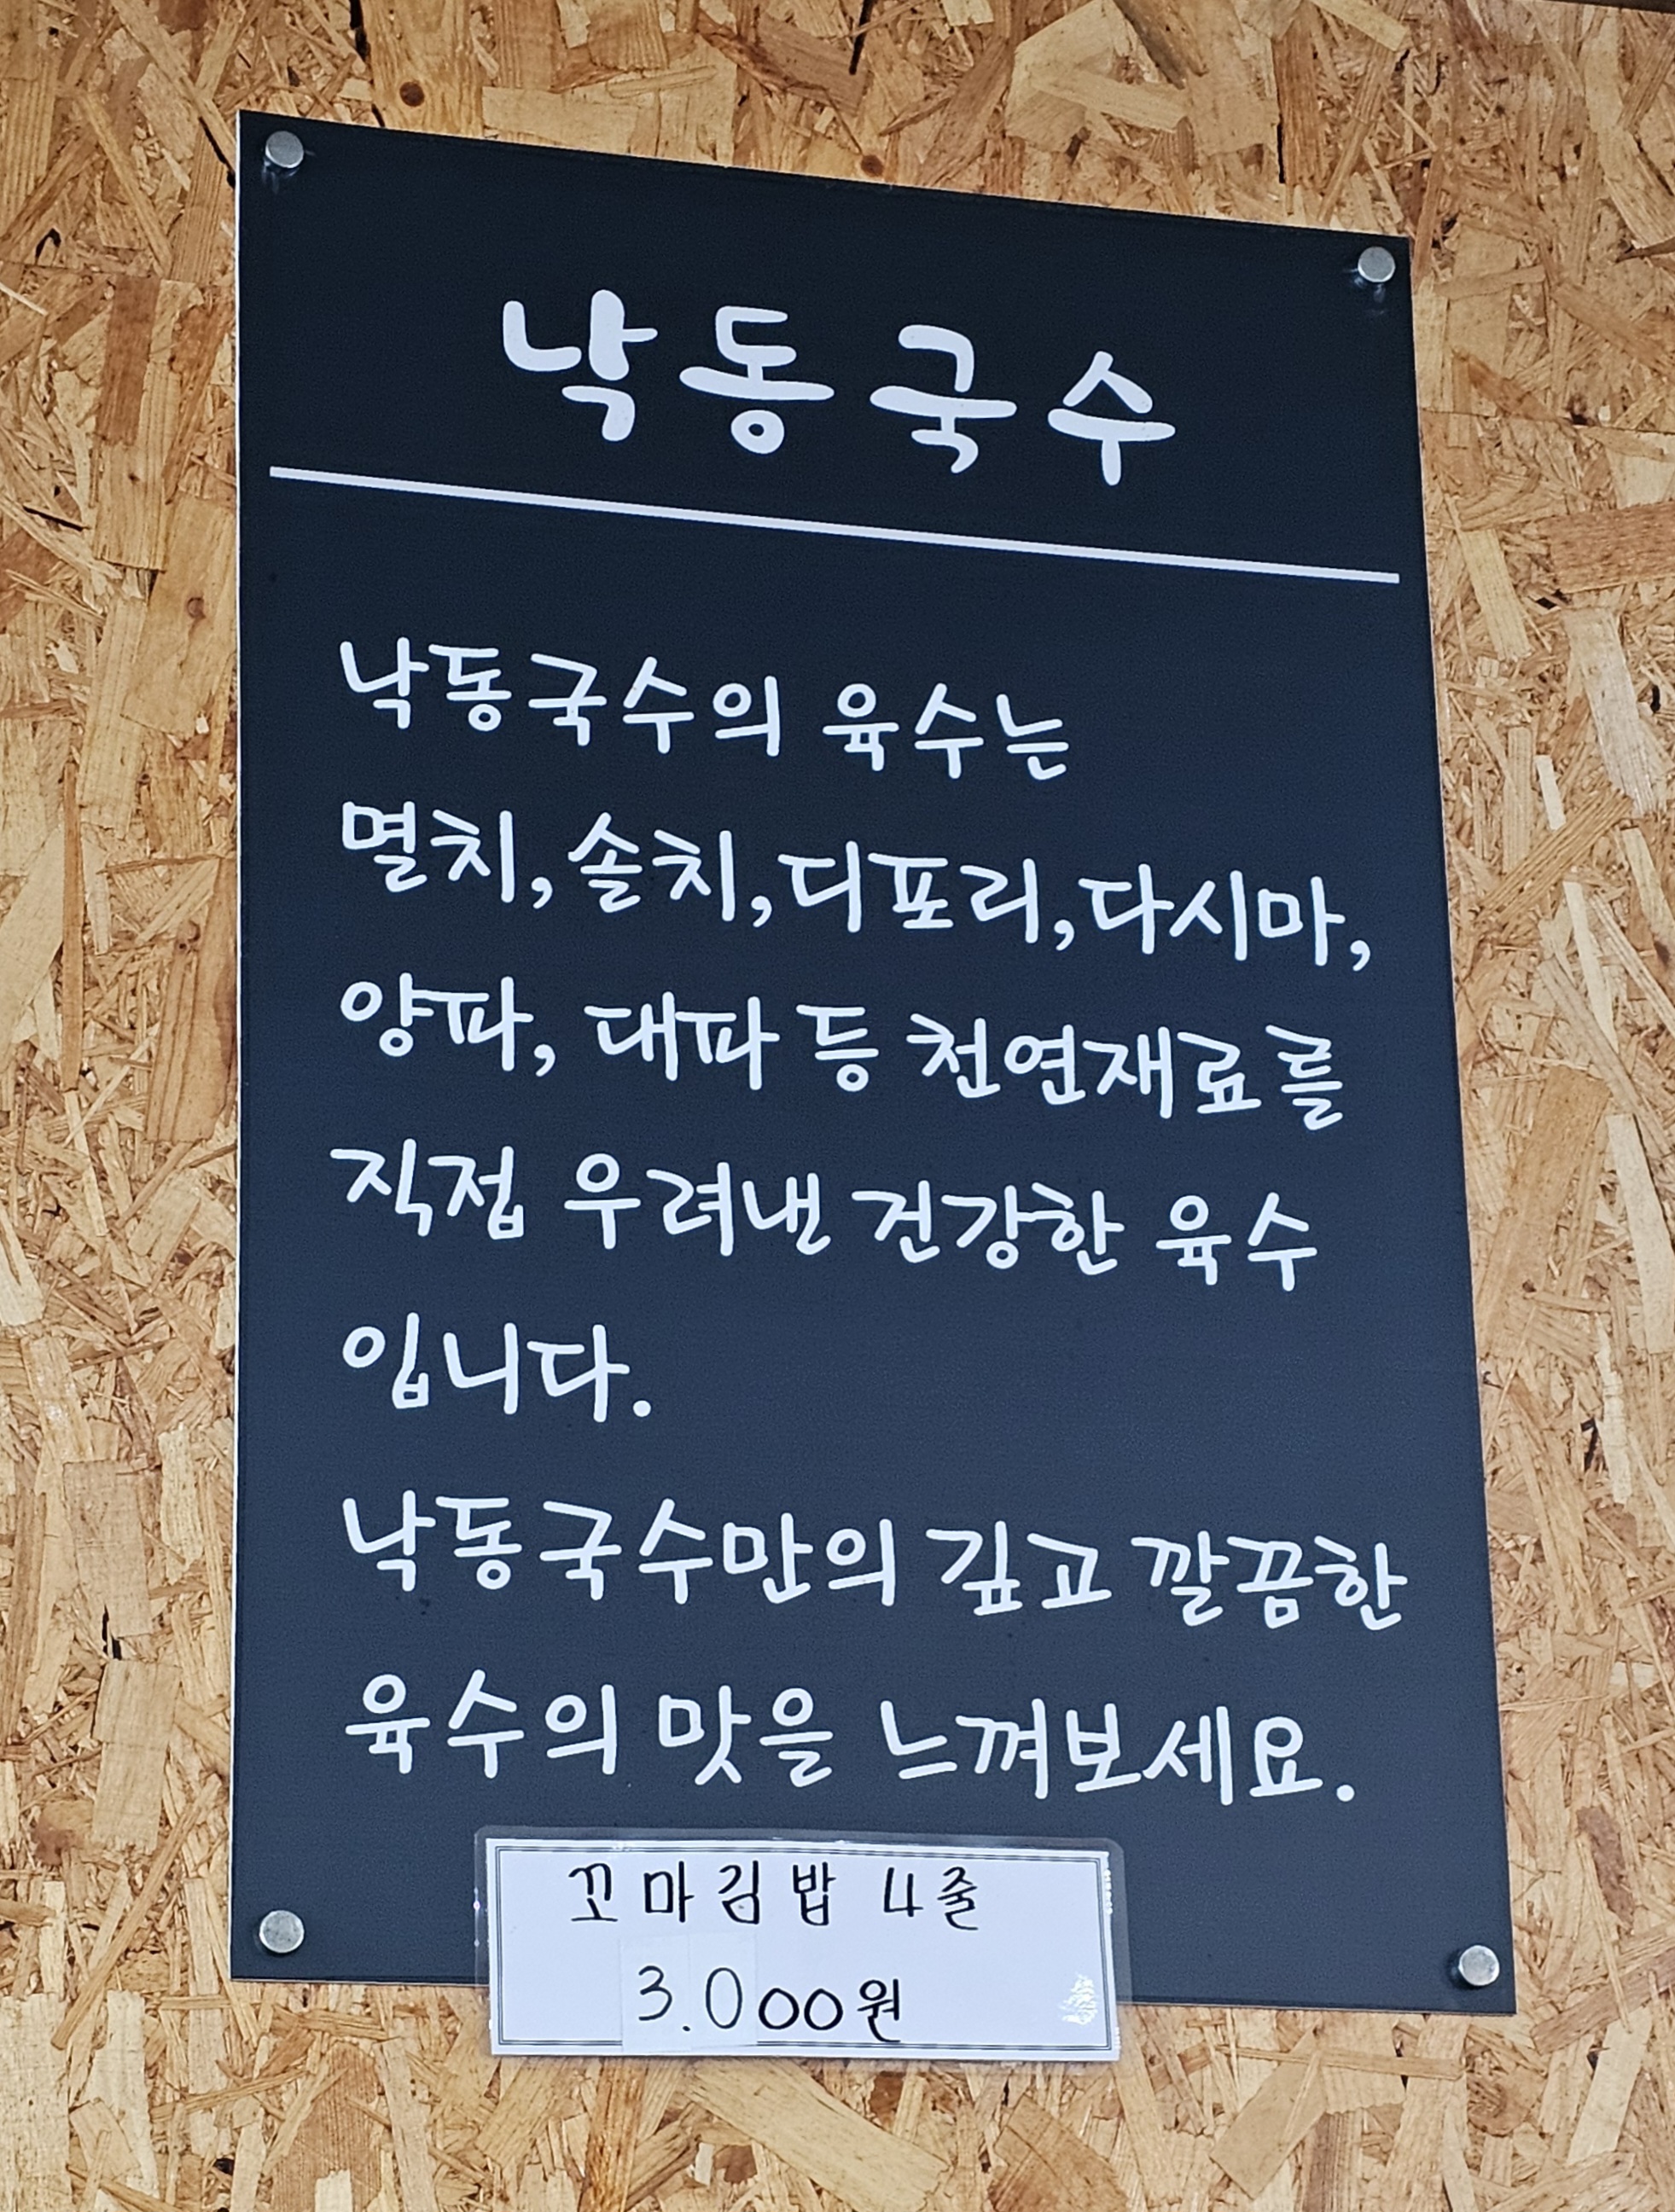 낙동국수
낙동국수의 육수는
멸치,솔치,디포리,다시마,
양파, 대파 등 천연재료를
직접 우려낸 건강한 육수
입니다.
낙동국수만의 깊고 깔끔한
육수의 맛을 느껴보세요.
꼬마김밥 4줄
3.000원